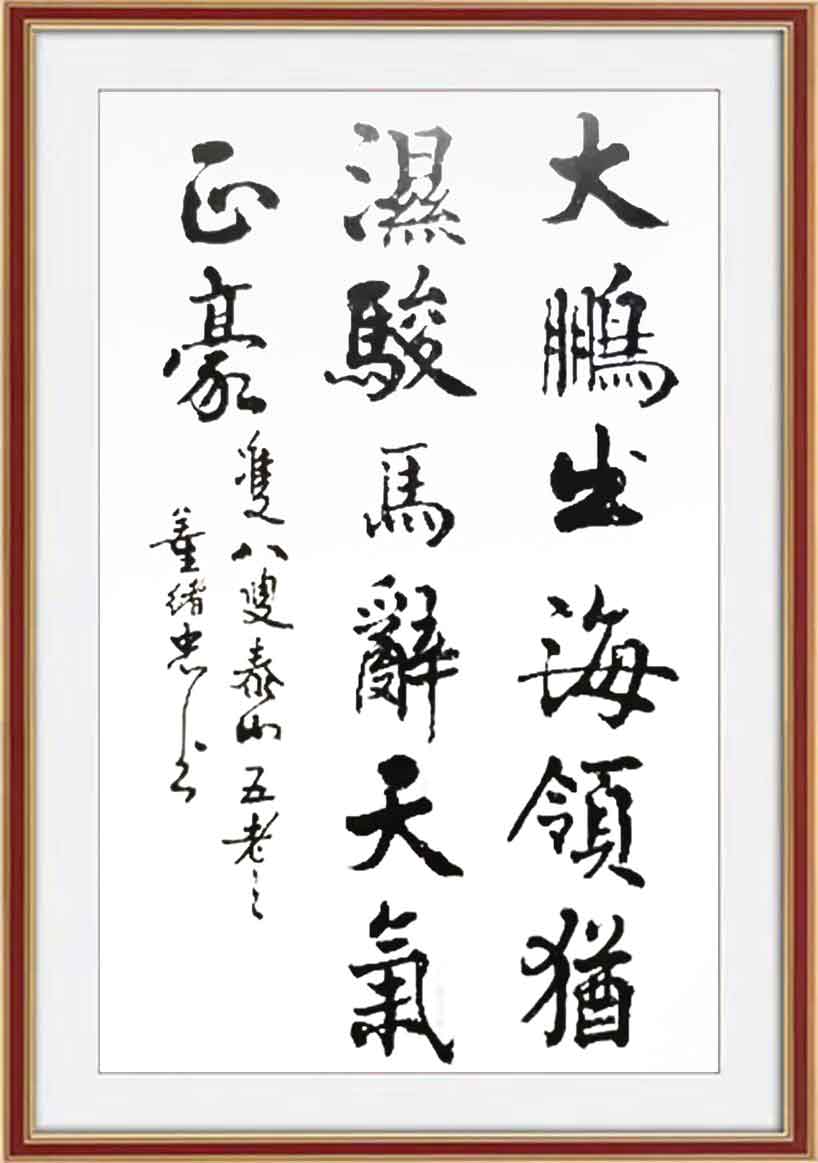 大鵬出海領猶
濕駿馬辭天氣
正豪
雙八叟泰山五老之
董緒忠书